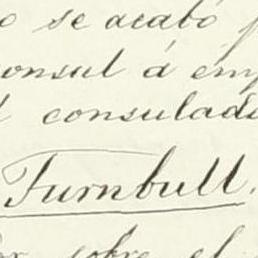 o se acabó
onsul á emp
l consulado
Turnbull.
Por sobre el